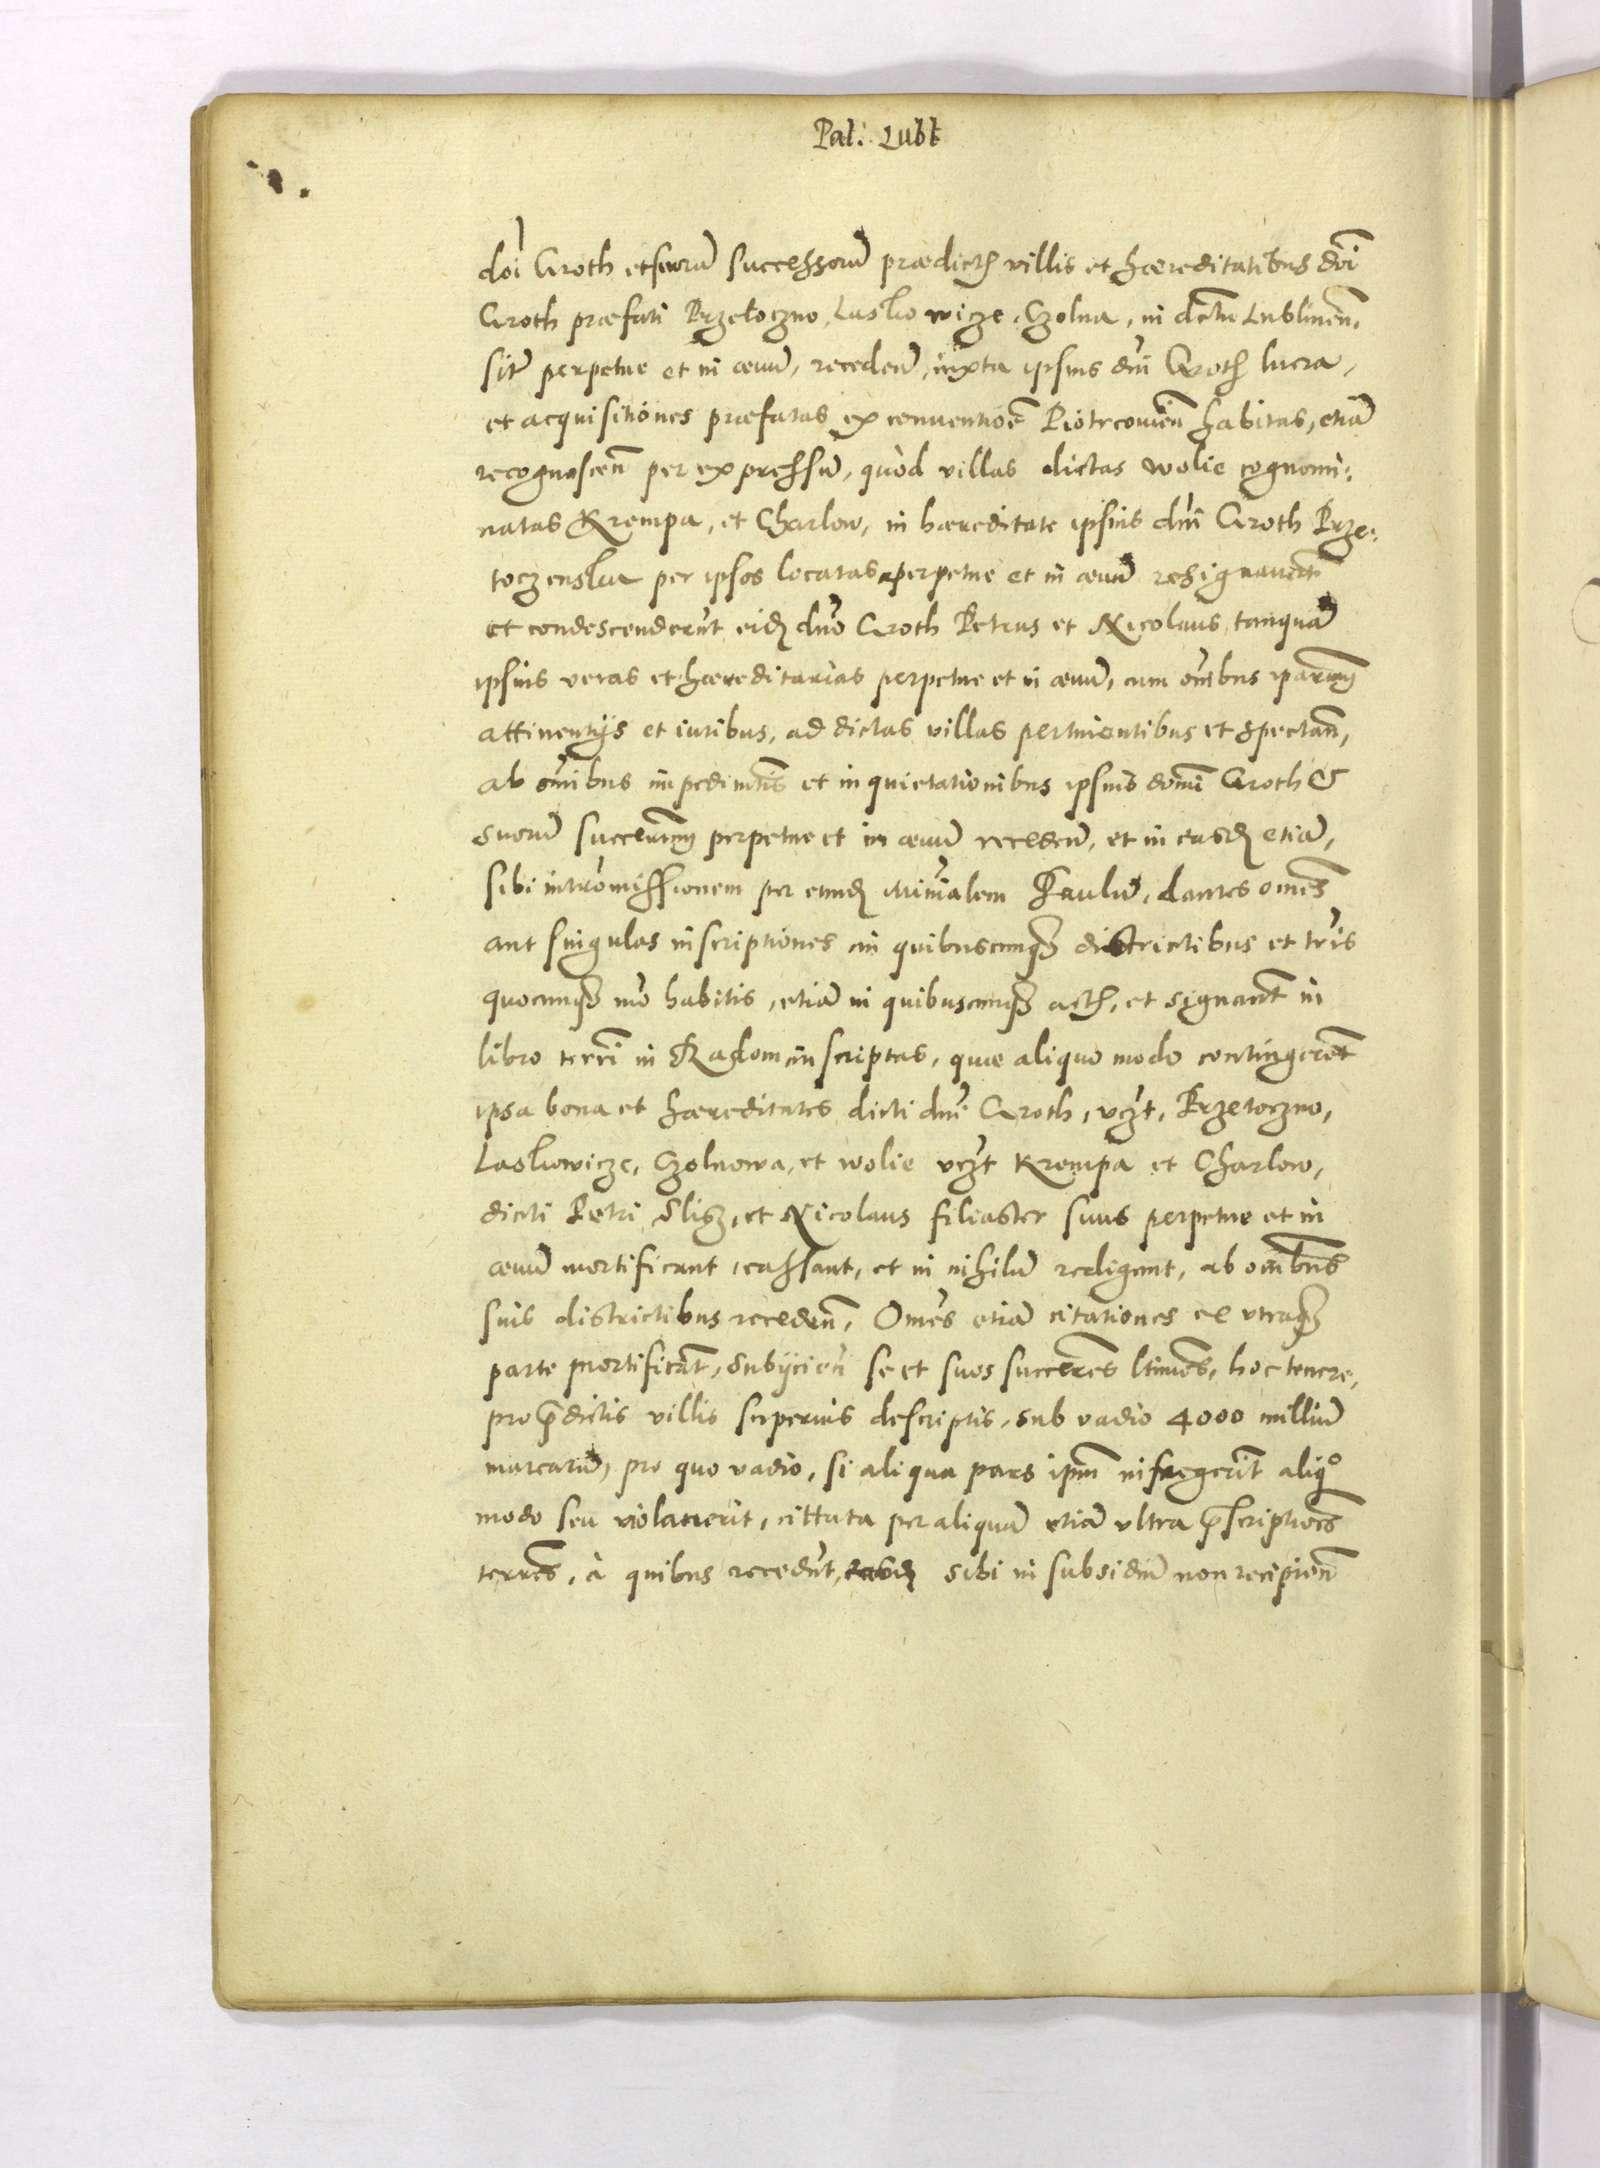 Pal: Lubl
doi Groth et suorũ successorũ prædictis villis et hæreditatibus dni
Groth præfati Przetoczno, Laskowicze, Czolna, in dctu Lublineñ,
sitĩ perpetue et in æuũ, recedeñ, iuxta ipsius dni Groth lucra,
et acquisitiones præfatas ex conuentioẽ Piotrcouieñ habitas, etiã
recognosceñ per expressũ, quòd villas dictas wolie cognomi:
natas Krempa, et Charlow, in hæreditate ipsius dni Groth Prze:
toczenska per ipsos locatas perpetue et in æuũ resignauerũt
et condescenderũt eidẽ dno Groth Petrus et Nicolaus, tanquã
ipsius veras et hæreditarias perpetue et in æuũ, cum oñibus iparum
attinentijs et iuribus, ad dictas villas pertinentibus et spectañ,
ab oñibus impedimẽtis et inquietationibus ipsius domi Groth &
suorũ succerum perpetue et in æuũ recedeñ, et in easdẽ etiã,
sibi intromissionem per eundẽ mĩĩalem Paulũ, dantes omẽs
aut singulas inscriptiones in quibuscunqȝ districtibus et tr̃is
quocunqȝ mõ habitis, etiã in quibuscunqȝ actis, et signañt in
libro terri in Radom inscriptas, quæ aliquo modo contingerẽt
ipsa bona et hæreditates dicti dni Groth, vczt, Przetoczno,
Laskowicze, Czolnowa, et wolie vczt Krempa et Charlow,
dicti Petri Slisz, et Nicolaus filiaster suus perpetue et in
æuũ mortificant, cassant, et in nihilũ redigunt, ab omĩbus
suis districtibus recedeñ, Omẽs etiã citationes ex vtraqȝ
parte mortificãt, subijcieñ se et suos succeres ltimos, hoc tenere,
pro p̃dictis villis superius descriptis, sub vadio 4000 milliũ
marcarũ, pro quo vadio, si aliqua pars ipm̃ infregerit aliqº
modo seu violauerit, cittata per aliquã etiã vltra p̃scriptiões
terres, à quibus recedũt, sibi in subsidiũ non recipieñ